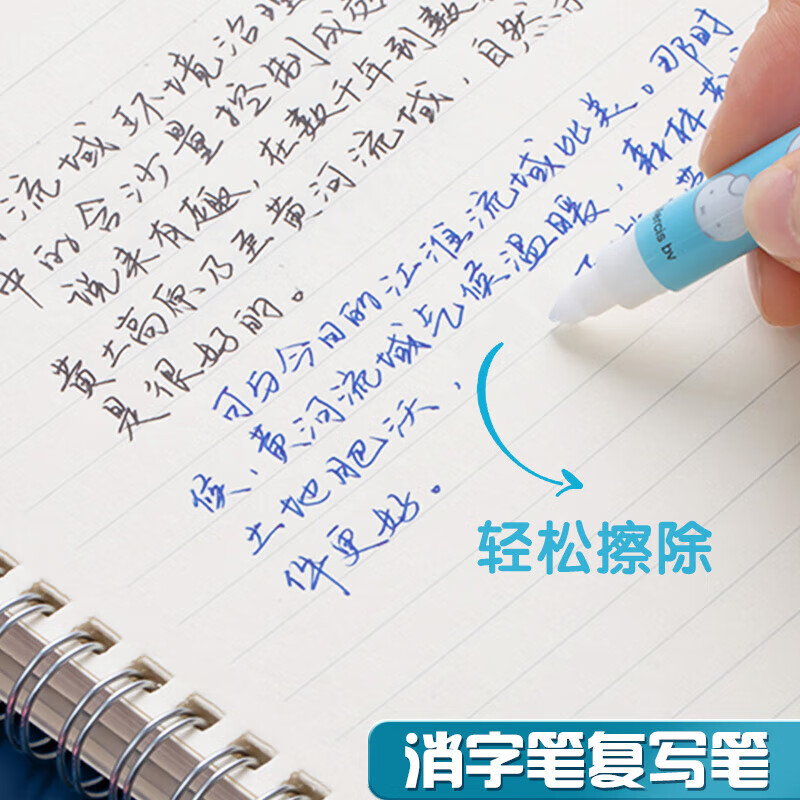 流域环境治理
中的含沙量控制成效
说来有趣，在数千年到数
黄土高原乃至黄河流域，自然
是很好的。
可与今日的江淮流域比美。那时
候，黄河流域气候温暖，森林
土地肥沃，
件更好。
ercis bv
轻松擦除
消字笔复写笔